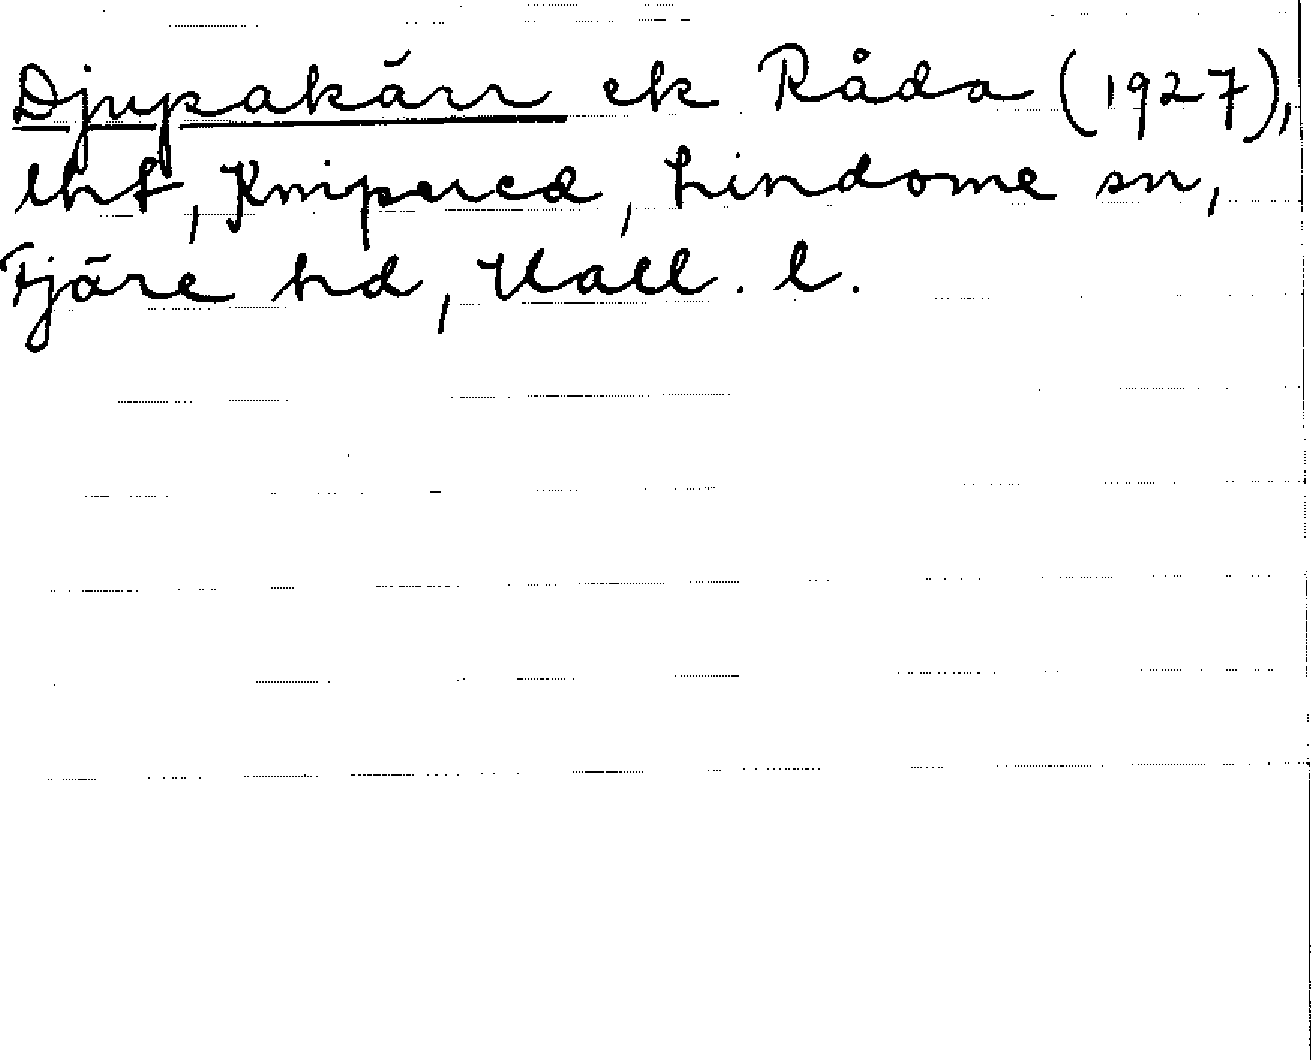 Djupakärr ek Råda (1927),
lht, Knipered, Lindome sn,
Fjäre hd, Hall. l.